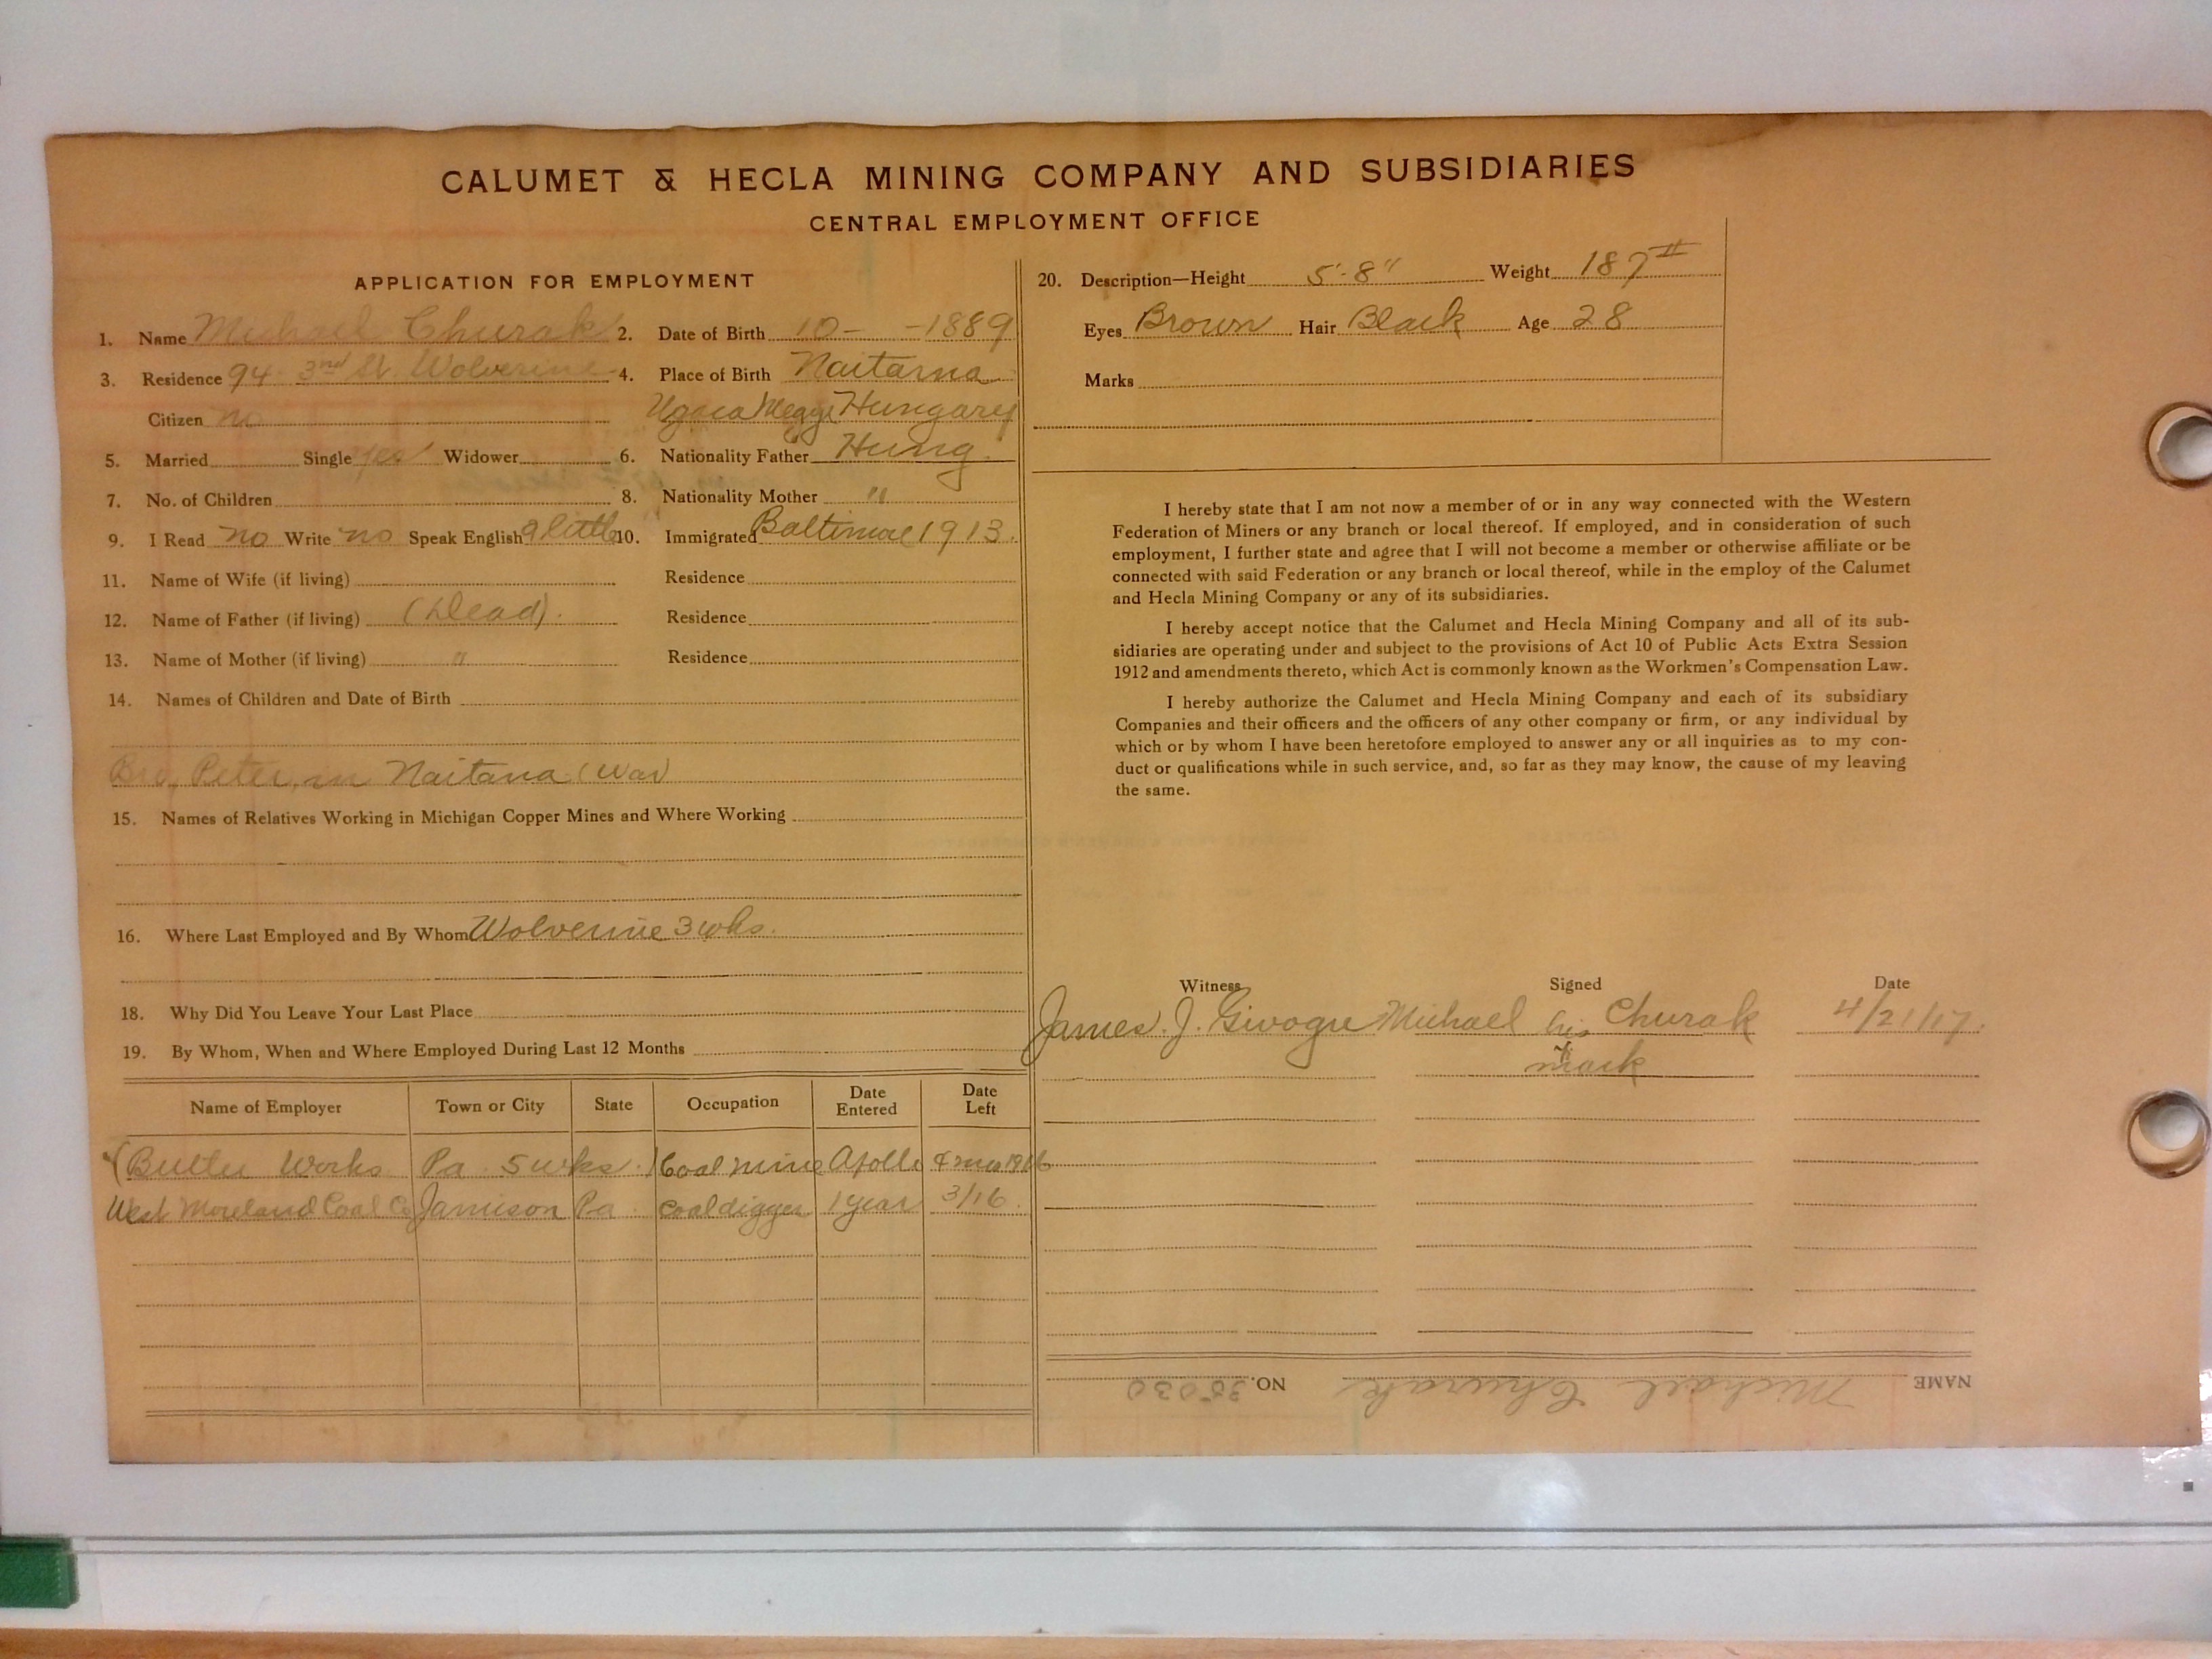 CALUMET & HECLA MINING COMPANY AND SUBSIDIARIES
CENTRAL EMPLOYMENT OFFICE
APPLICATION FOR EMPLOYMENT
1. Name Michael Churak 2. Date of Birth 10- -1889
3. Residence 94 3rd St. Wolverine 4. Place of Birth Naitarna
Citizen no Ugoca Megye Hungary
5. Married Single yes Widower 6. Nationality Father Hung.
7. No. of Children 8. Nationality Mother "
9. I Read no Write no Speak English a little 10. Immigrated Baltimore 1913.
11. Name of Wife (if living) Residence
12. Name of Father (if living) (Dead). Residence
13. Name of Mother (if living) " Residence
14. Names of Children and Date of Birth
Bro. Peter, in Naitana (War)
15. Names of Relatives Working in Michigan Copper Mines and Where Working
16. Where Last Employed and By Whom Wolverine 3 wks.
18. Why Did You Leave Your Last Place
19. By Whom, When and Where Employed During Last 12 Months
Name of Employer Town or City State Occupation Date Entered Date Left
Works Pa. 5 wks. Coal mine Apollo 1916
West Moreland Coal Co Jamison Pa. coal digger 1 year 3/16.
20. Description—Height 5'-8" Weight 187#
Eyes Brown Hair Black Age 28
Marks
I hereby state that I am not now a member of or in any way connected with the Western
Federation of Miners or any branch or local thereof. If employed, and in consideration of such
employment, I further state and agree that I will not become a member or otherwise affiliate or be
connected with said Federation or any branch or local thereof, while in the employ of the Calumet
and Hecla Mining Company or any of its subsidiaries.
I hereby accept notice that the Calumet and Hecla Mining Company and all of its sub-
sidiaries are operating under and subject to the provisions of Act 10 of Public Acts Extra Session
1912 and amendments thereto, which Act is commonly known as the Workmen's Compensation Law.
I hereby authorize the Calumet and Hecla Mining Company and each of its subsidiary
Companies and their officers and the officers of any other company or firm, or any individual by
which or by whom I have been heretofore employed to answer any or all inquiries as to my con-
duct or qualifications while in such service, and, so far as they may know, the cause of my leaving
the same.
Witness Signed Date
James. J. Michael his Churak 4/21/17.
x
mark
NAME Michael Churak NO. 35030